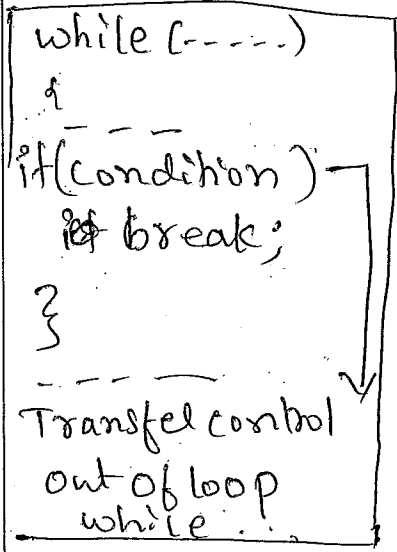 while (-----)
{
- - -
if(condition)
break;
}
- - - -
Transfel control
out of loop
while ...